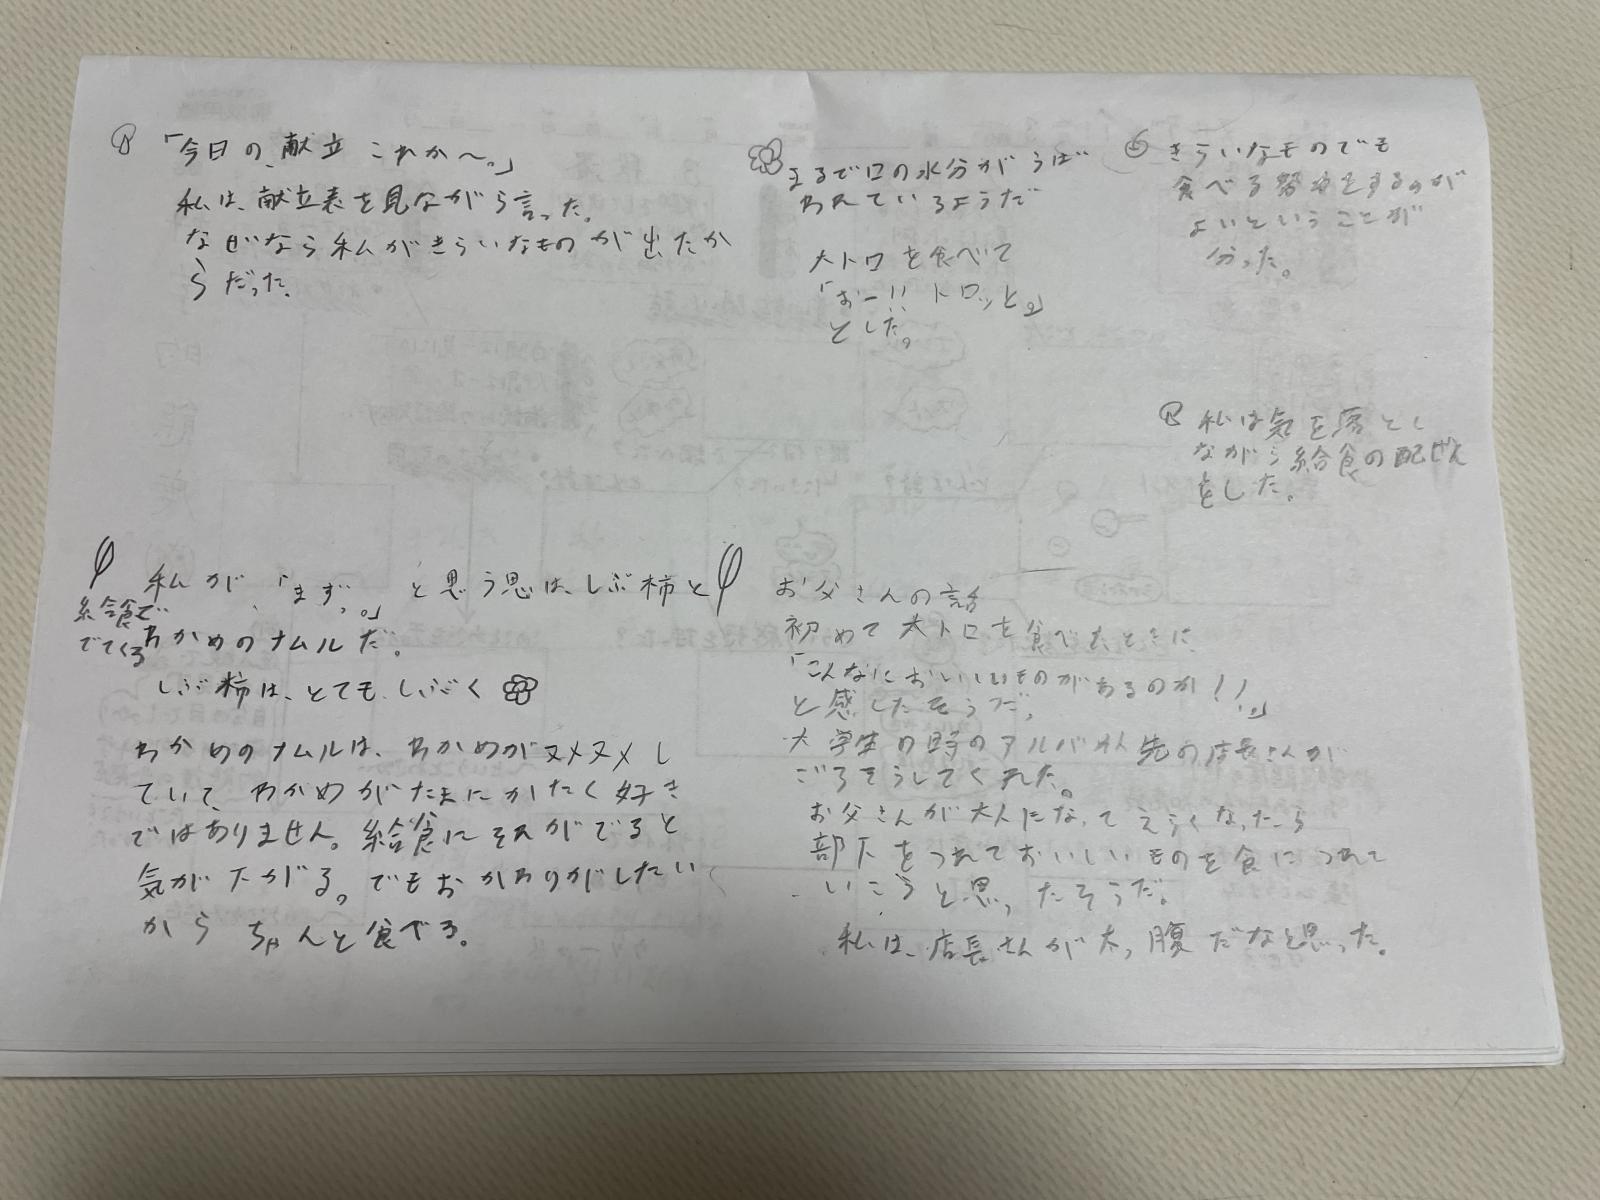 「今日の、献立 これか〜。」
私は、献立表を見ながら言った。
なぜなら私がきらいなものが出たか
らだった。
まるで口の水分がうば
われているようだ
大トロを食べて
「おー!! トロッと。」
とした。
きらいなものでも
食べる努力をするのが
よいということが
分った。
私は気を落とし
ながら給食の配ぜん
をした。
私が、「まずっ。」と思う思は、しぶ柿と
給食で
でてくる
わかめのナムルだ。
しぶ柿は、とても、しぶく
わかめのナムルは、わかめがヌメヌメし
ていて、わかめがたまにかたく好き
ではありません。給食にそれがでると
気が下がる。でもおかわりがしたい
から ちゃんと食べる。
お父さんの話
初めて大トロを食べたときに、
「こんなにおいしいものがあるのか!!」
と感じたそうだ。
大学生の時のアルバイト先の店長さんが
ごちそうしてくれた。
お父さんが大人になってえらくなったら
部下をつれておいしいものを食につれて
いこうと思ったそうだ。
私は、店長さんが太っ腹だなと思った。